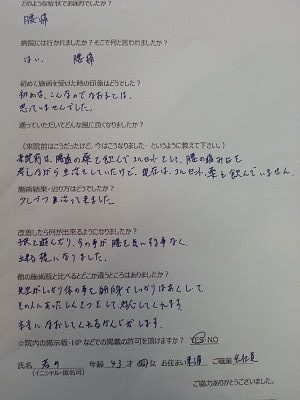 どのような症状でお悩みでしたか？
腰痛
病院には行かれましたか？そこで何と言われましたか？
はい、腰痛
初めて施術を受けた時の印象はどうでした？
初めは、こんなのでなおるとは、
思っていませんでした。
通っていただいてどんな風に良くなりましたか？
【来院前はこうだったけど、今はこうなりました…というように教えて下さい。】
来院前は、腰痛の薬を飲んでコルセットをして、腰の痛みを
しながら生活をしていたけど、現在は、コルセット、薬も飲んでいません。
施術結果・治り方はどうでした？
少しづつ治って来ました。
改善したら何が出来るようになりましたか？
と遊んだり、の事が腰を気にする事なく、
出来る様になりました。
他の施術院と比べるとどこか違うところはありましたか？
先生がしっかり体の事を説明してしっかりはあくして、
その人にあったしんさつをして、してくれます
本当になおしてくれるかんじがします。
☆院内の掲示板・HPなどでの掲載の許可を頂けますか？ YES・NO
氏名 年齢 43才 男・女 お住まい ご職業 会社員
（イニシャル・匿名可）
ご協力ありがとうございました。